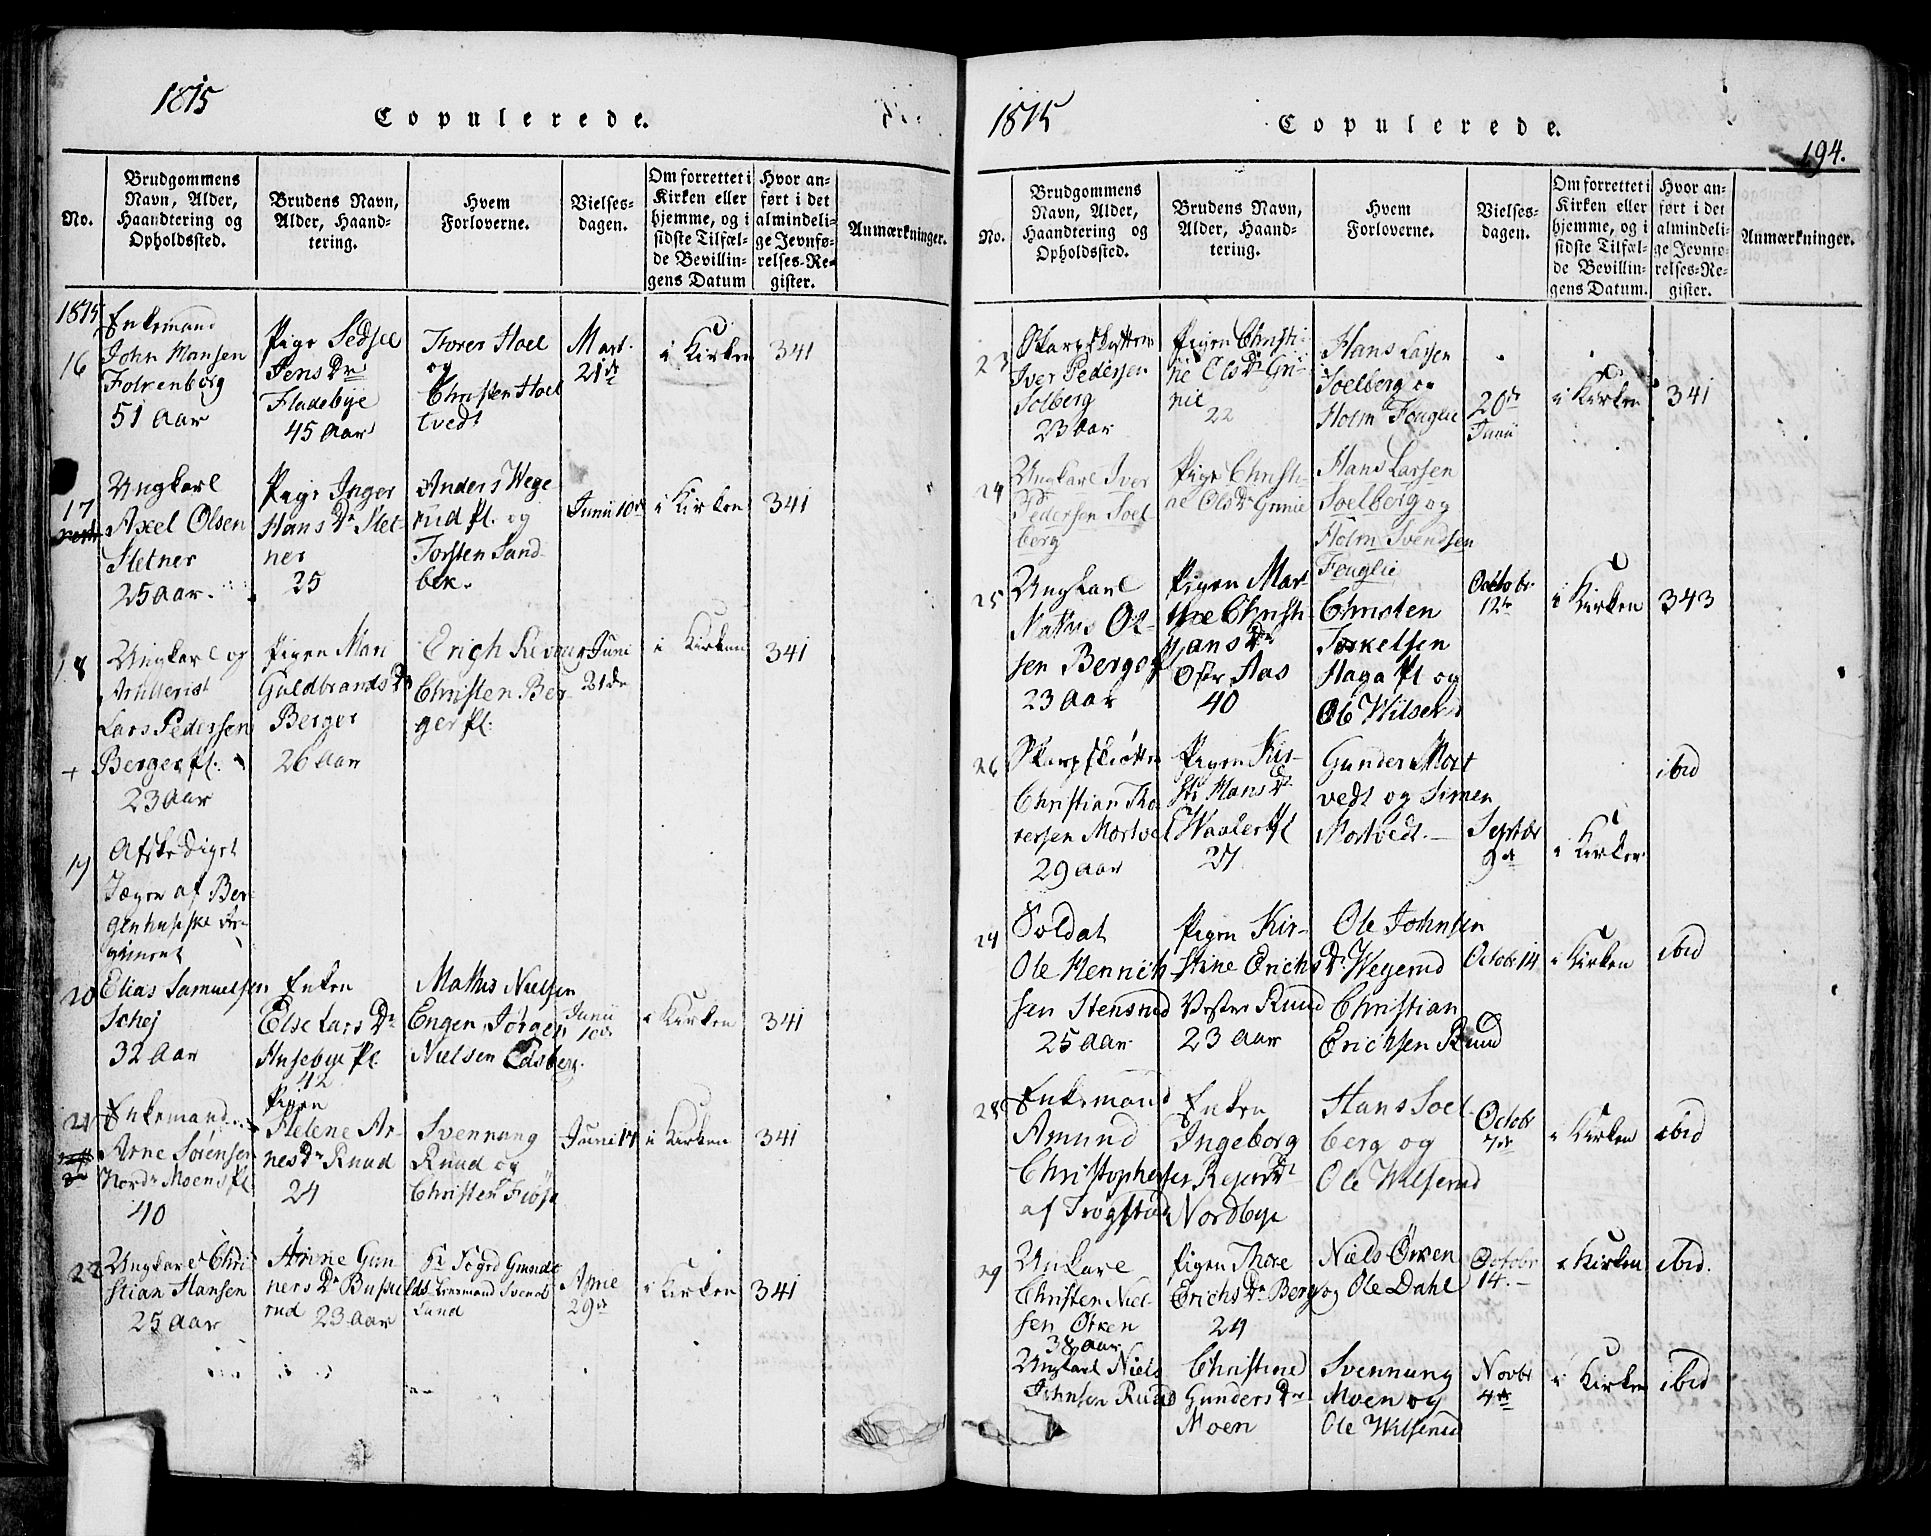 1815
Copulerede.
No.
Brudgommens
Navn, Alder,
Haandtering og
Opholdssted.
Brudens Navn,
Alder, Haand-
tering.
Hvem
Forloverne.
Vielses-
dagen.
Om forrettet i
Kirken eller
hjemme, og i
sidste Tilfæl-
de Bevillin-
gens Datum
Hvor an-
ført i det
almindeli-
ge Jevnfø-
relses-Re-
gister.
Anmærkninger.
1815
16
Enkemand
John Hansen
Folkenborg
51 Aar
Pige Sedsel
Jens Dr
Fladebye
45 Aar
Torer Hoel
og
Christen Hoel
tvedt
Mart.
21de
i Kirken
341
17
Ungkarl
Axel Olsen
Sletner
25 Aar.
Pige Inger
Hans Dr Slet-
ner
25
Anders Wege
rud Pl. og
Torsten Sand-
bek.
Junii 10de
i Kirken
341
18
Ungkarl og
Artillerist
Lars Pedersen
Berger Pl.
23 Aar
Pigen Mari
Guldbrands Dr
Berger
26 Aar
Erich
Christen Ber
ger Pl:
Juni
21de
i Kirken
341
19
Afskediget
Jæger af Ber-
genhusiske Re-
giment
20
Elias Samuelsen
Schej
32 Aar
Enken
Else Lars Dr
Husebye Pl.
42
Mathis Nielsen
Engen, Jørgen
Nielsen Edsberg.
Junii
10de
i Kirken
341
21
Enkemand
Arne Sørensen
Nordr Moens Pl
40
Pigen
Helene Ar-
nes Dr Ruud
24
Svennung
Ruud og
Christen
Juni 14
i Kirken
341
22
Ungkarl Chri
stian Hansen
25 Aar
Anne Gun
ners Dr
rud 23 Aar
Hr
Lund
29de
i Kirken
341
1815
Copulerede.
194.
No.
Brudgommens
Navn, Alder,
Haandtering og
Opholdssted.
Brudens Navn,
Alder, Haand-
tering.
Hvem
Forloverne.
Vielses-
dagen.
Om forrettet i
Kirken eller
hjemme, og i
sidste Tilfæl-
de Bevillin-
gens Datum.
Hvor an-
ført i det
almindeli-
ge Jevnfø-
relses-Re-
gister.
Anmærkninger.
23
Skarpskytten
Iver Pedersen
Solberg
23 Aar
Pigen Christi-
ne Ols Dr Gri-
nie
22
Hans Larsen
Soelberg og
Holm Fouglie
20de
Junii
i Kirken
341
24
Ungkarl Iver
Pedersen Soel-
berg
Pige Christi-
ne Ols Dr Grinie
Hans Larsen
Soelberg og
Holm Svendsen
Fouglie
25
Ungkarl
Mathis Ol-
sen Berger Pl
23 Aar
Pigen Mar-
the Christi-
ans Dr
Øster Aas
40
Christen
Torkelsen
Haga Pl og
Ole Wilserud
Octobr
12te
i Kirken
343
26
Skarpskiøtte
Christian Tho
resen Mortvet
29 Aar
Pigen Kir-
sti Hans Dr
Waaler Pl
27
Gunder Mort
vedt og Simen
Mortvedt.
Septbr
9de
i Kirken
ibid
Soldat
Ole Henrich
sen Stensrud
25 Aar
Pigen Kir-
stine Erichs Dr
Vestre Ruud
23 Aar
Ole Johnsen
Wegerud
Christian
Erichsen Ruud
Octobr 14
i Kirken
ibid
28
Enkemand
Amund
Christophersen
af Trøgstad
Enken
Ingeborg
Nordbye
Hans Soel
berg og
Ole Wilserud
Octobr
7de
i Kirken
ibid
29
Unkarl
Christen Niel-
sen Ørken
38 Aar
Pigen Thore
Erichs Dr Berg
24
Niels Ørken
og Ole Dahl
Octobr
14.
i Kirken
ibid.
Ungkarl Niels
Johnsen Ruud
Christine
Gunders Dr
Moen
Svennung
Moen og
Ole Wilserud
Novbr
4de
i Kirken
ibid